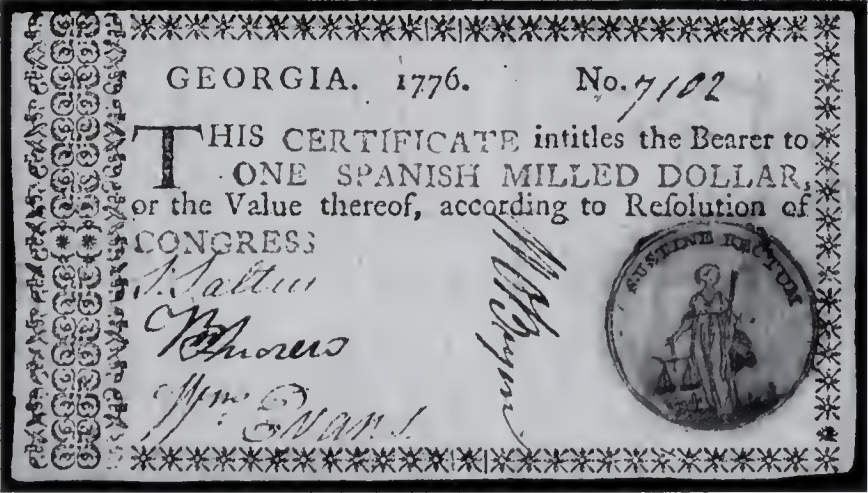 GEORGIA. 1776. No. 7102
THIS CERTIFICATE intitles the Bearer to
ONE SPANISH MILLED DOLLAR,
or the Value thereof, according to Reſolution of
CONGRESS
SUSTINE RECTUM
Wm. Evans.